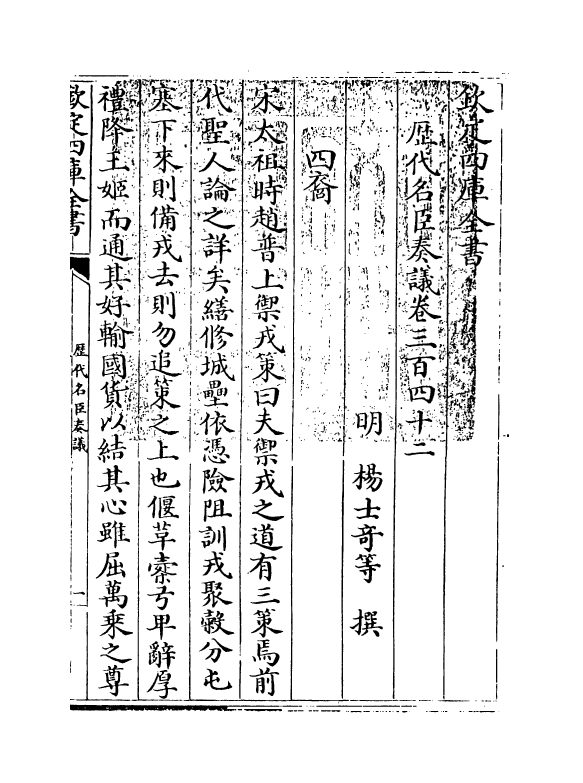 欽定四庫全書
歴代名臣奏議卷三百四十二
明 楊士奇等 撰
四裔
宋太祖時趙普上禦戎策曰夫禦戎之道有三策焉前
代聖人論之詳矣繕修城壘依憑險阻訓戎聚穀分屯
塞下來則備戎去則勿追策之上也偃革櫜弓卑辭厚
禮降王姬而通其好輸國貨以結其心雖屈萬乘之尊
欽定四庫全書
歴代名臣奏議
一